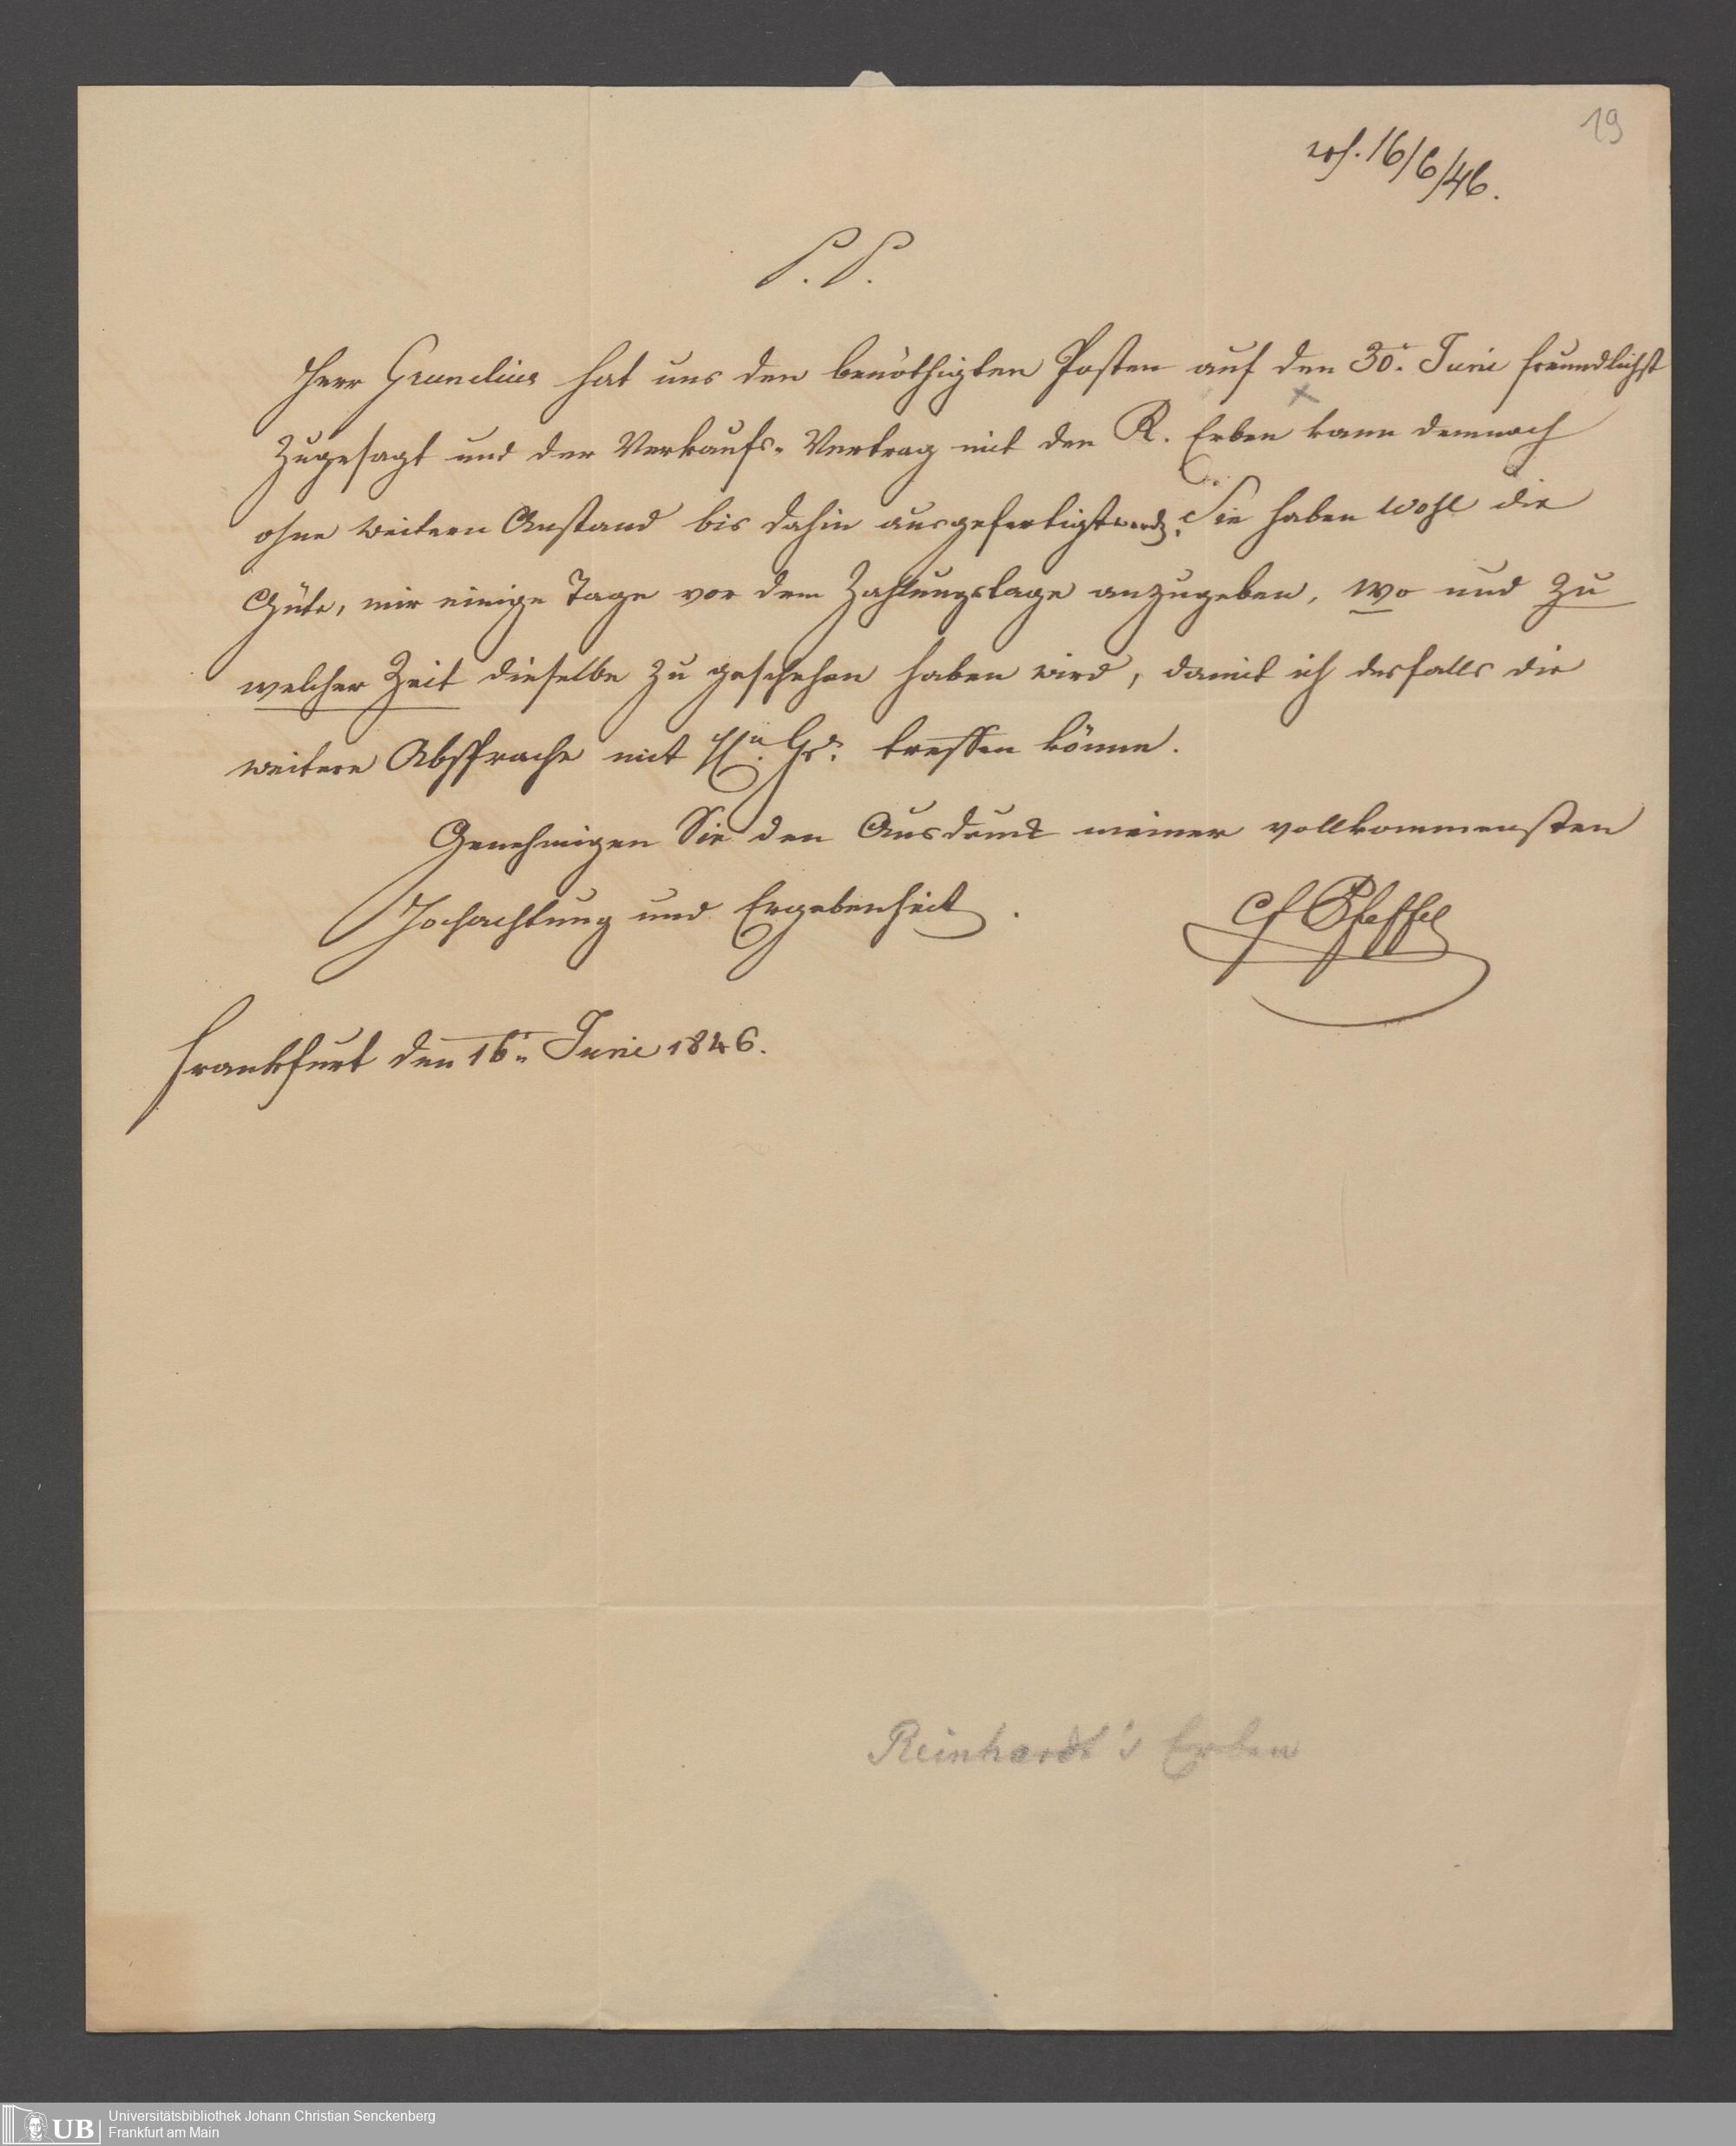 19
erh. 16/6/46.
P. P.
Herr Grunelius hat uns den benöthigten Posten auf den 30. Juni freundlichst
zugesagt und der Verkaufs-Vertrag mit den R. Erben kann demnach
ohne weitern Anstand bis dahin ausgefertigt werd. Sie haben wohl die
Güte, mir einige Tage vor dem Zahlungstage anzugeben, wo und zu
welcher Zeit dieselbe zu geschehen haben wird, damit ich desfalls die
weitere Absprache mit H. Gr. treffen könne.
Genehmigen Sie den Ausdruck meiner vollkommensten
Hochachtung und Ergebenheit.
Cf Pfeffel
Frankfurt den 16. Juni 1846.
Reinhardt's Erben
UB
Universitätsbibliothek Johann Christian Senckenberg
Frankfurt am Main